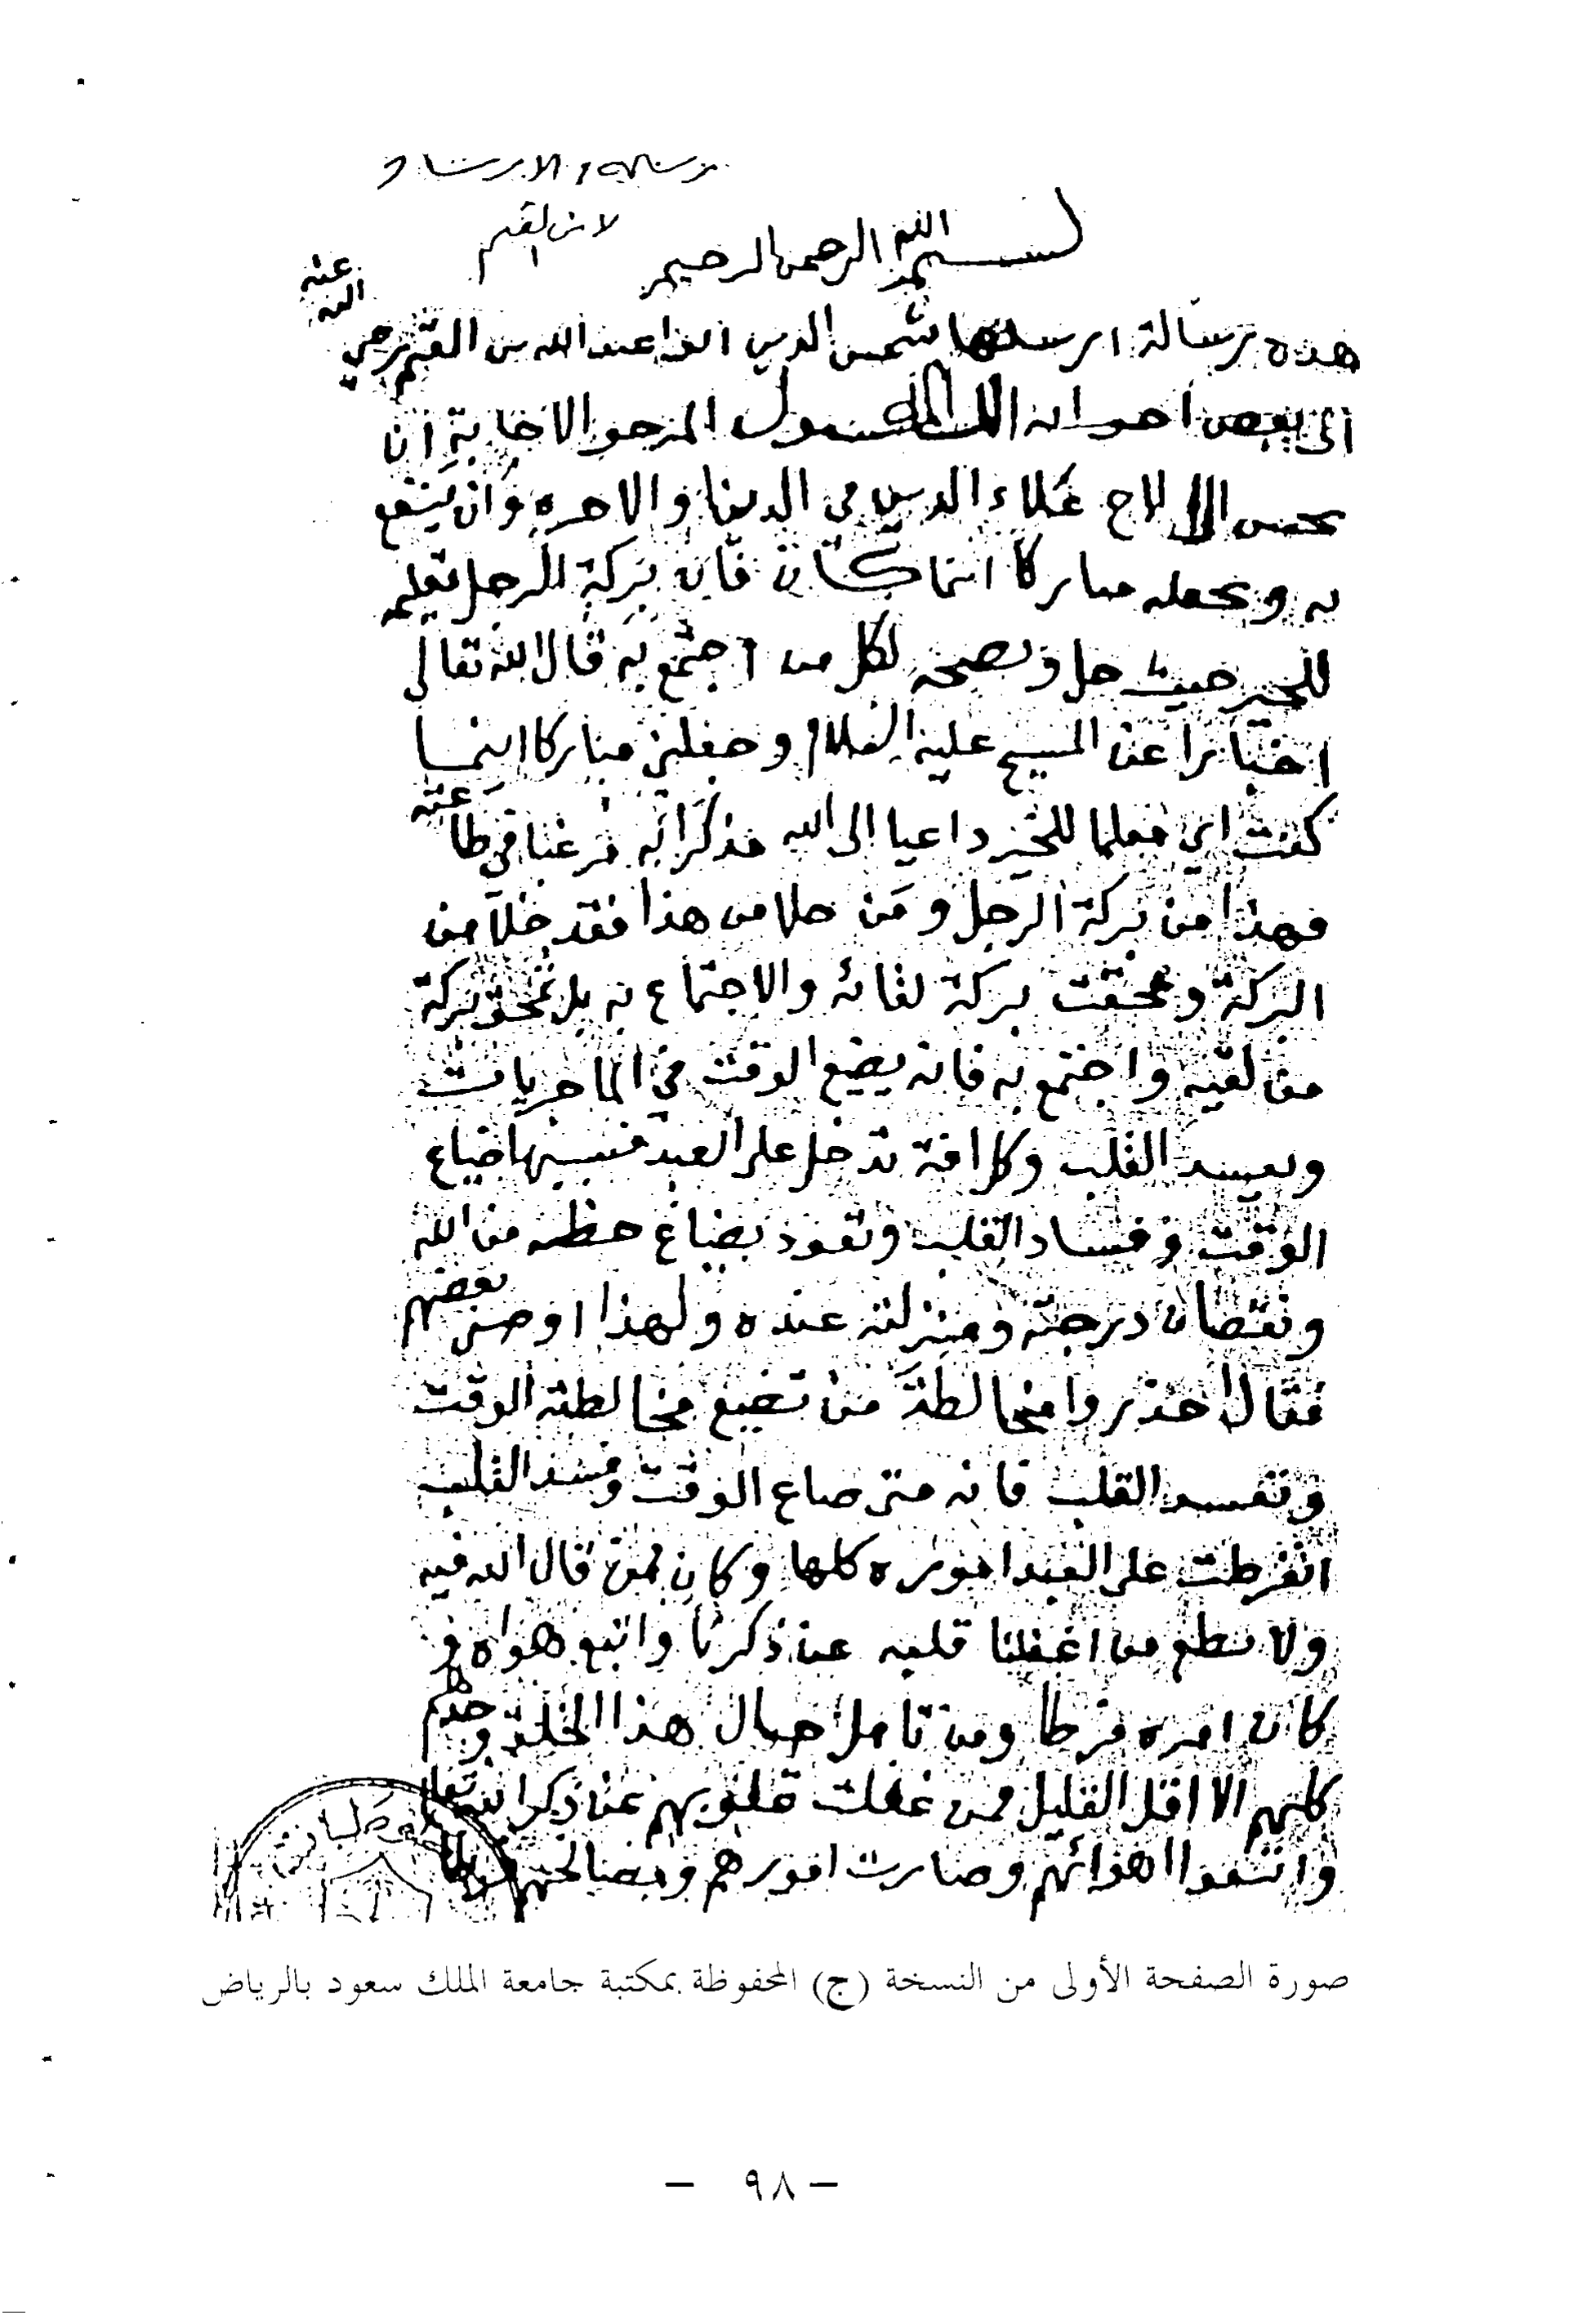 رسالة الارشاد
لابن القيم
بسم الله الرحمن الرحيم
هذه رسالة ارسلها شمس الدين ابو عبد الله بن القيم رضي الله عنه
الى بعض اخوانه الله المسول المرجو الاجابة ان
يحسن الى الاخ علاء الدين في الدنيا والاخره وان ينفع
به ويجعله مباركا اينما كان فان بركة الرجل تعليمه
للخير حيث حل ونصحه لكل من اجتمع به قال الله تعالى
اخبارا عن المسيح عليه السلام وجعلني مباركا اينما
كنت اي معلما للخير داعيا الى الله مذكرا به مرغبا في طاعته
فهذا من بركة الرجل ومن خلا من هذا فقد خلا من
البركة ومحقت بركة لقائه والاجتماع به بل تمحق بركة
من لقيه واجتمع به فانه يضيع الوقت في الماجريات
ويفسد القلب وكل افة تدخل على العبد فسببها ضياع
الوقت وفساد القلب وتعود بضياع حظه من الله
ونقصان درجته ومنزلته عنده ولهذا اوصى بعضهم
فقال احذروا مخالطة من تضيع مخالطته الوقت
وتفسد القلب فانه متى ضاع الوقت وفسد القلب
انفرطت على العبد اموره كلها وكان ممن قال الله فيه
ولا تطع من اغفلنا قلبه عن ذكرنا واتبع هواه و
كان امره فرطا ومن تامل حال هذا الخلق وجدهم
كلهم الا اقل القليل ممن غفلت قلوبهم عن ذكر الله تعالى
واتبعوا اهوائهم وصارت امورهم ومصالحهم فرطا
صورة الصفحة الأولى من النسخة (ج) المحفوظة بمكتبة جامعة الملك سعود بالرياض
— ٩٨ —